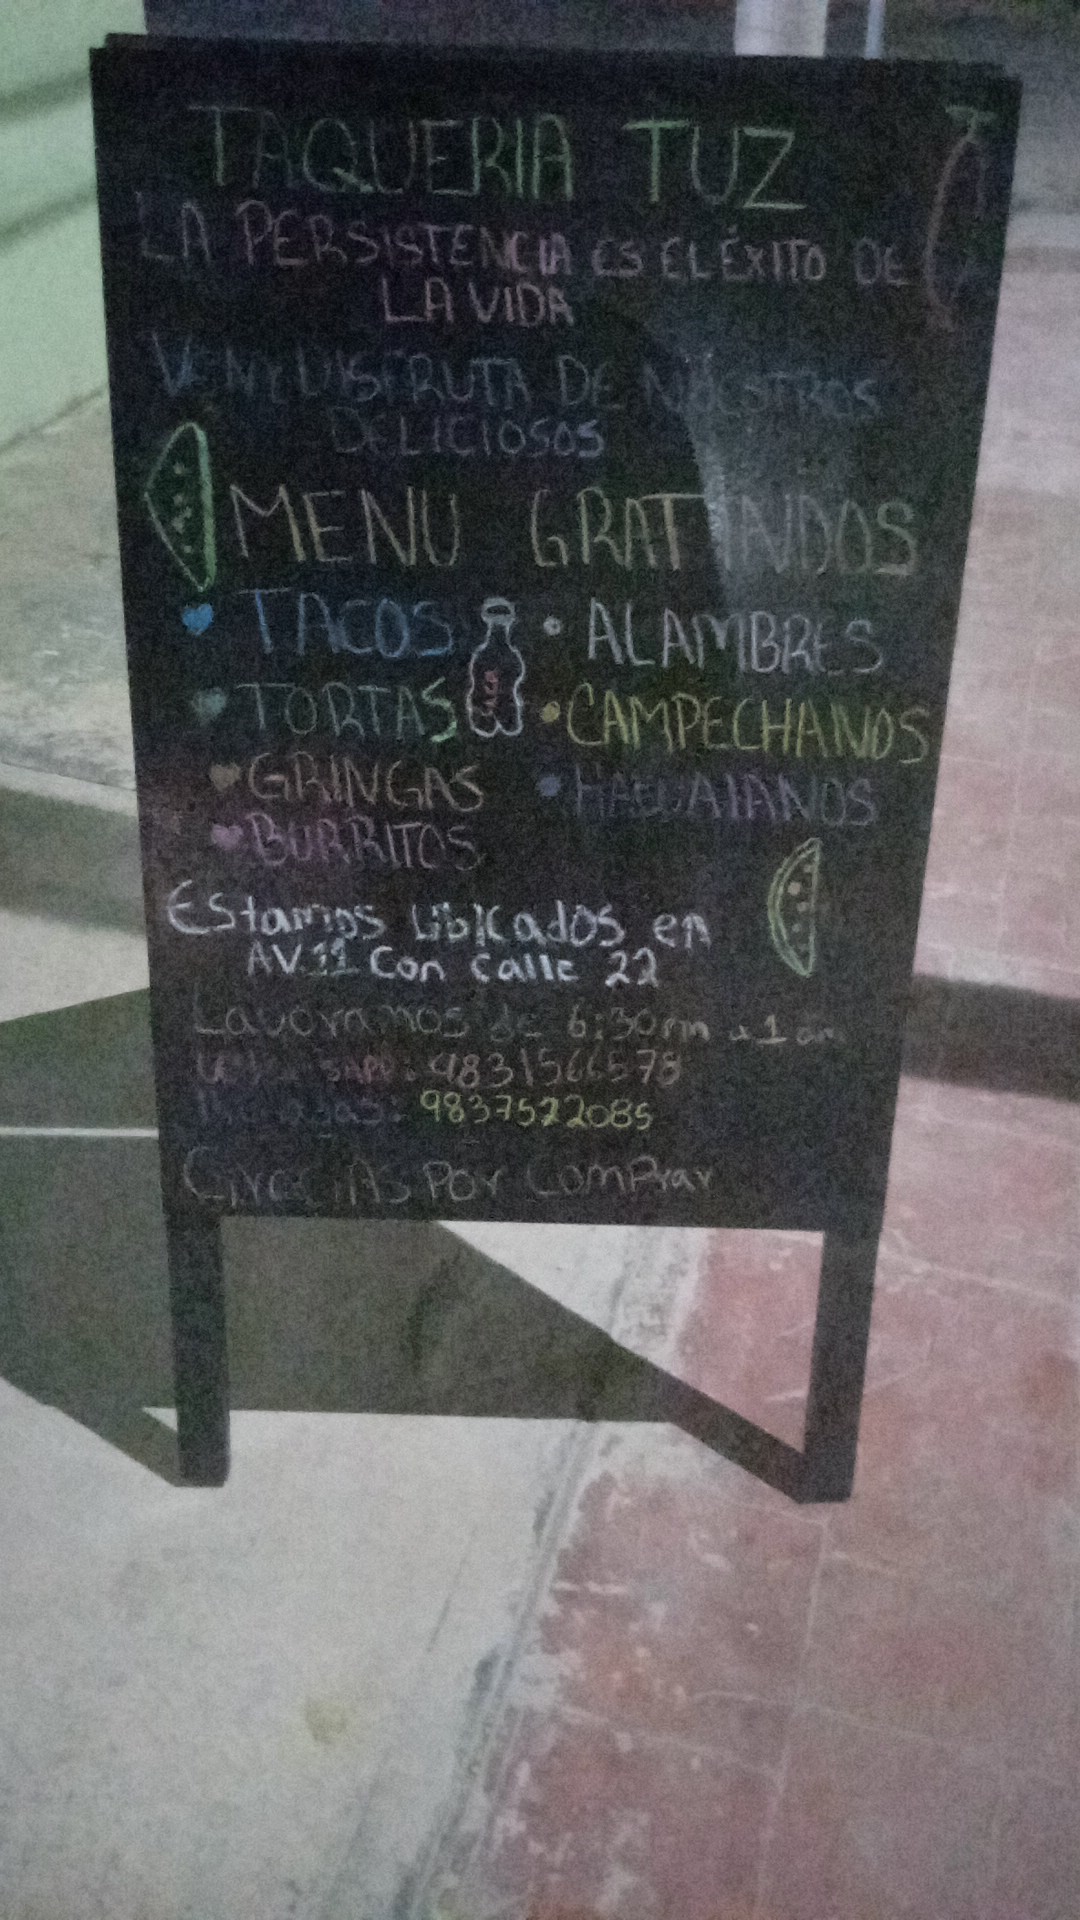 TAQUERIA TUZ
LA PERSISTENCIA ES EL ÉXITO DE
LA VIDA
VEN Y DISFRUTA DE NUESTROS
DELICIOSOS
MENU GRATINDOS
TACOS ALAMBRES
TORTAS CAMPECHANOS
GRINGAS
BURRITOS
EStamos Ubicados en
AV.11 Con calle 22
Lavoramos de 6:30 pm a 1 am
9831566578
9837522085
GraCIAS Por ComPrar